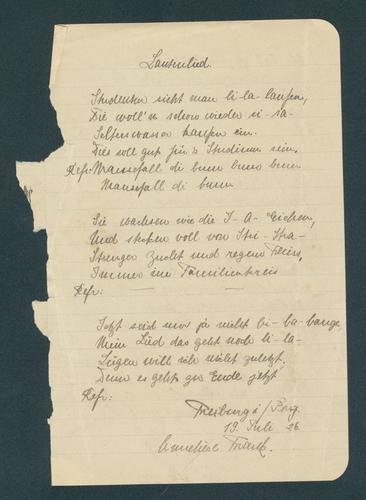 Lautenlied.
Studenten sieht man li-la-laufen,
Die woll'n schon wieder si-sa-
Selterwasser kaufen ein.
Dies soll gut für's Studium sein.
Refr: Mausefall di bum bum bum
Mausefall di bum
Sie wachsen wie die I-A-Eichen,
Und stecken voll von Stri-Stra-
Strenger Zucht und regem Fleiss,
Immer im Familienkreis
Refr:
Jetzt seid nur ja nicht bi-ba-bange,
Mein Lied das geht noch li-la-
Lügen will ich nicht zuletzt,
Denn es geht zu Ende jetzt
Refr:
Freiburg i/Brsg.
19. Juli 26
Anneliese